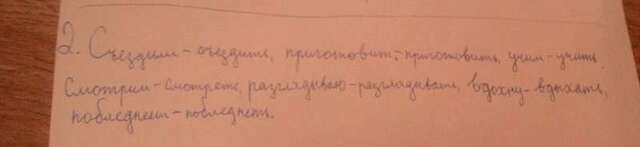 2. Съездим - съездить, приготовит - приготовить, учим - учить.
Смотрим - смотреть, разглядываю - разглядывать, вдохну - вдыхать,
побледнеет - побледнеть.